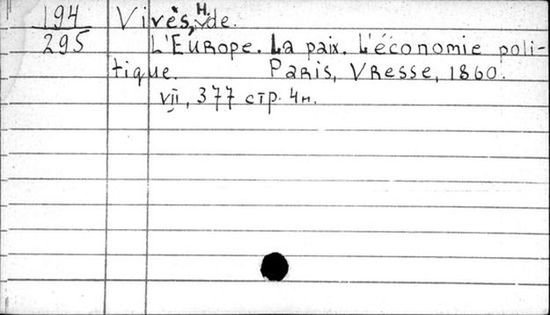 194 Vivès, H. de.
295 L'Europe. La paix. L'économie poli-
tique. Paris, Vresse, 1860.
vii, 377 стр. 4н.